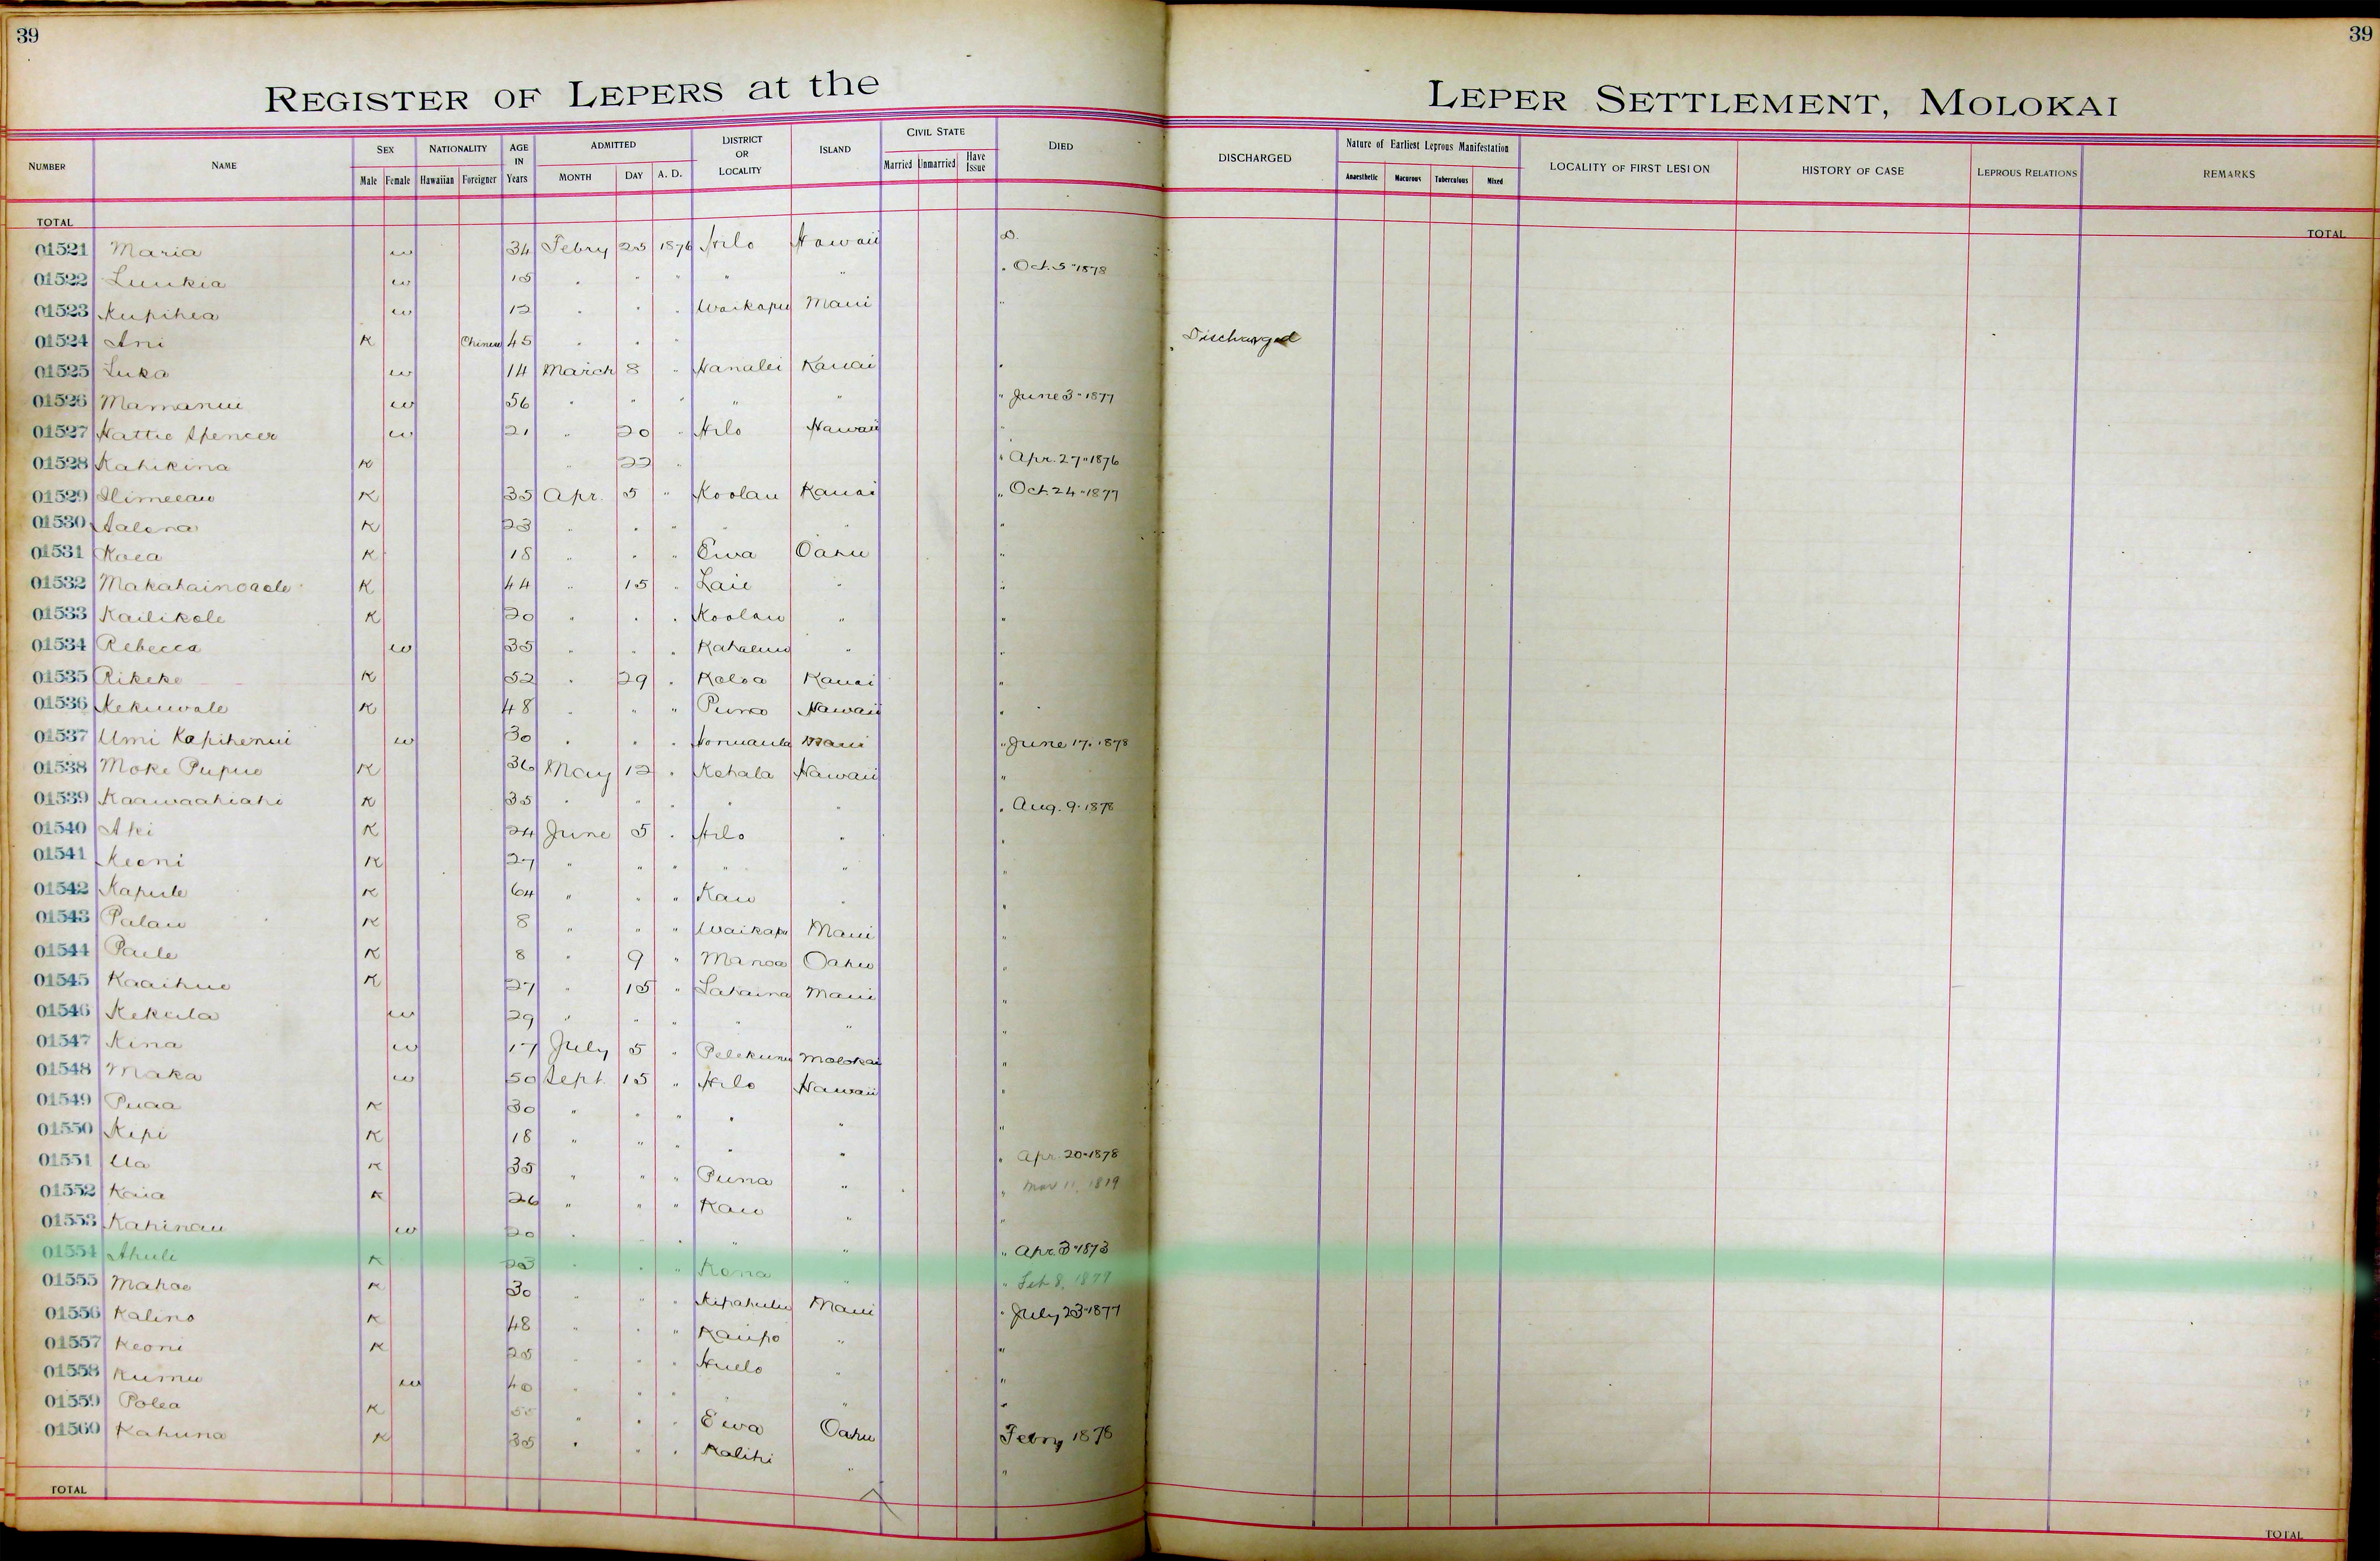 39
39
REGISTER OF LEPERS at the LEPER SETTLEMENT, MOLOKAI
NUMBER NAME SEX NATIONALITY AGE IN Years ADMITTED DISTRICT OR LOCALITY ISLAND CIVIL STATE DIED DISCHARGED Nature of Earliest Leprous Manifestation LOCALITY OF FIRST LESION HISTORY OF CASE LEPROUS RELATIONS REMARKS
Male Female Hawaiian Foreigner MONTH DAY A. D. Married Unmarried Have Issue Anaesthetic Macurous Tuberculous Mixed
TOTAL TOTAL
01521 Maria w 34 Febry 25 1876 Hilo Hawaii D.
01522 Luukia w 15 " " " " " " Oct. 5 " 1878
01523 Kupihea w 12 " " " Waikapu Maui "
01524 Ani K Chinese 45 " " " Discharged
01525 Luka w 14 March 8 " Hanalei Kauai "
01526 Mamanui w 56 " " " " " " June 3 " 1877
01527 Hattie Spencer w 21 " 20 " Hilo Hawaii "
01528 Kahikina K " 22 " " Apr. 27 " 1876
01529 K 35 Apr. 5 " Koolau Kauai " Oct. 24 " 1877
01530 K 23 " " " " " "
01531 Koea K 18 " " " Ewa Oahu "
01532 Makahainoaole K 44 " 15 " Laie " "
01533 Kailikole K 20 " " " Koolau " "
01534 Rebecca w 35 " " " " "
01535 Rikeke K 52 " 29 " Koloa Kauai "
01536 Kekuwale K 48 " " " Puna Hawaii "
01537 Umi Kapihenui w 30 " " " Honuaula Maui " June 17 " 1878
01538 Moke Pupuo K 36 May 12 " Kohala Hawaii "
01539 Kaawaahiahi K 35 " " " " " " Aug. 9 " 1878
01540 Aki K 24 June 5 " Hilo " "
01541 Keoni K 27 " " " " " "
01542 Kapule K 64 " " " Kau " "
01543 Palau K 8 " " " Waikapu Maui "
01544 Paule K 8 " 9 " Manoa Oahu "
01545 Kaaihue K 27 " 15 " Lahaina Maui "
01546 Kekula w 29 " " " " " "
01547 Kina w 17 July 5 " Pelekunu Molokai "
01548 Maka w 50 Sept. 15 " Hilo Hawaii "
01549 Puaa K 30 " " " " " "
01550 Kepi K 18 " " " " " " Apr. 20 " 1878
01551 Ua K 35 " " " Puna " " Mar 11, 1819
01552 Kaia K 26 " " " Kau " "
01553 Kahinau w 20 " " " " " " Apr. 3 " 1873
01554 Ahuli K 23 " " " Kona " "
01555 Mahoe K 30 " " " Kipahulu Maui " July 23 " 1877
01556 Kalino K 48 " " " Kaupo " "
01557 Keoni K 25 " " " Huelo "
01558 Kumu w 40 " " " " "
01559 Polea K 55 " " " Ewa Oahu Febry 1878
01560 Kahuna K 35 " " " Kalihi " "
TOTAL TOTAL